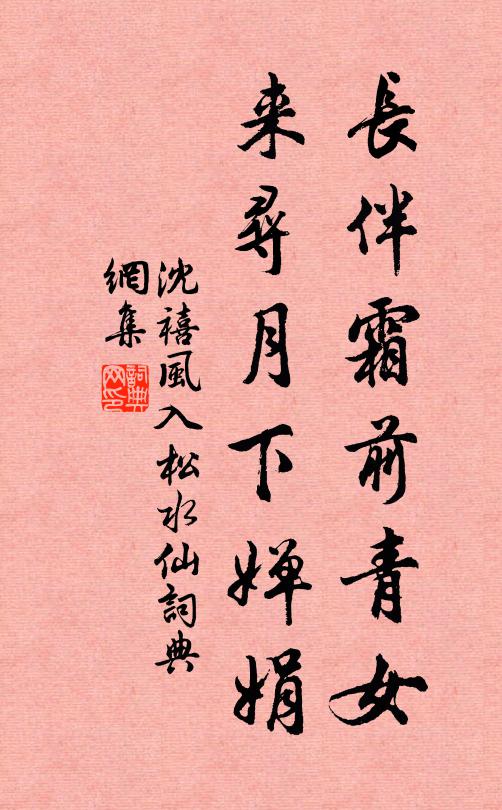 長伴霜前青女
来尋月下嬋娟
沈禧風入松水仙詞典
網集
詞典
网印